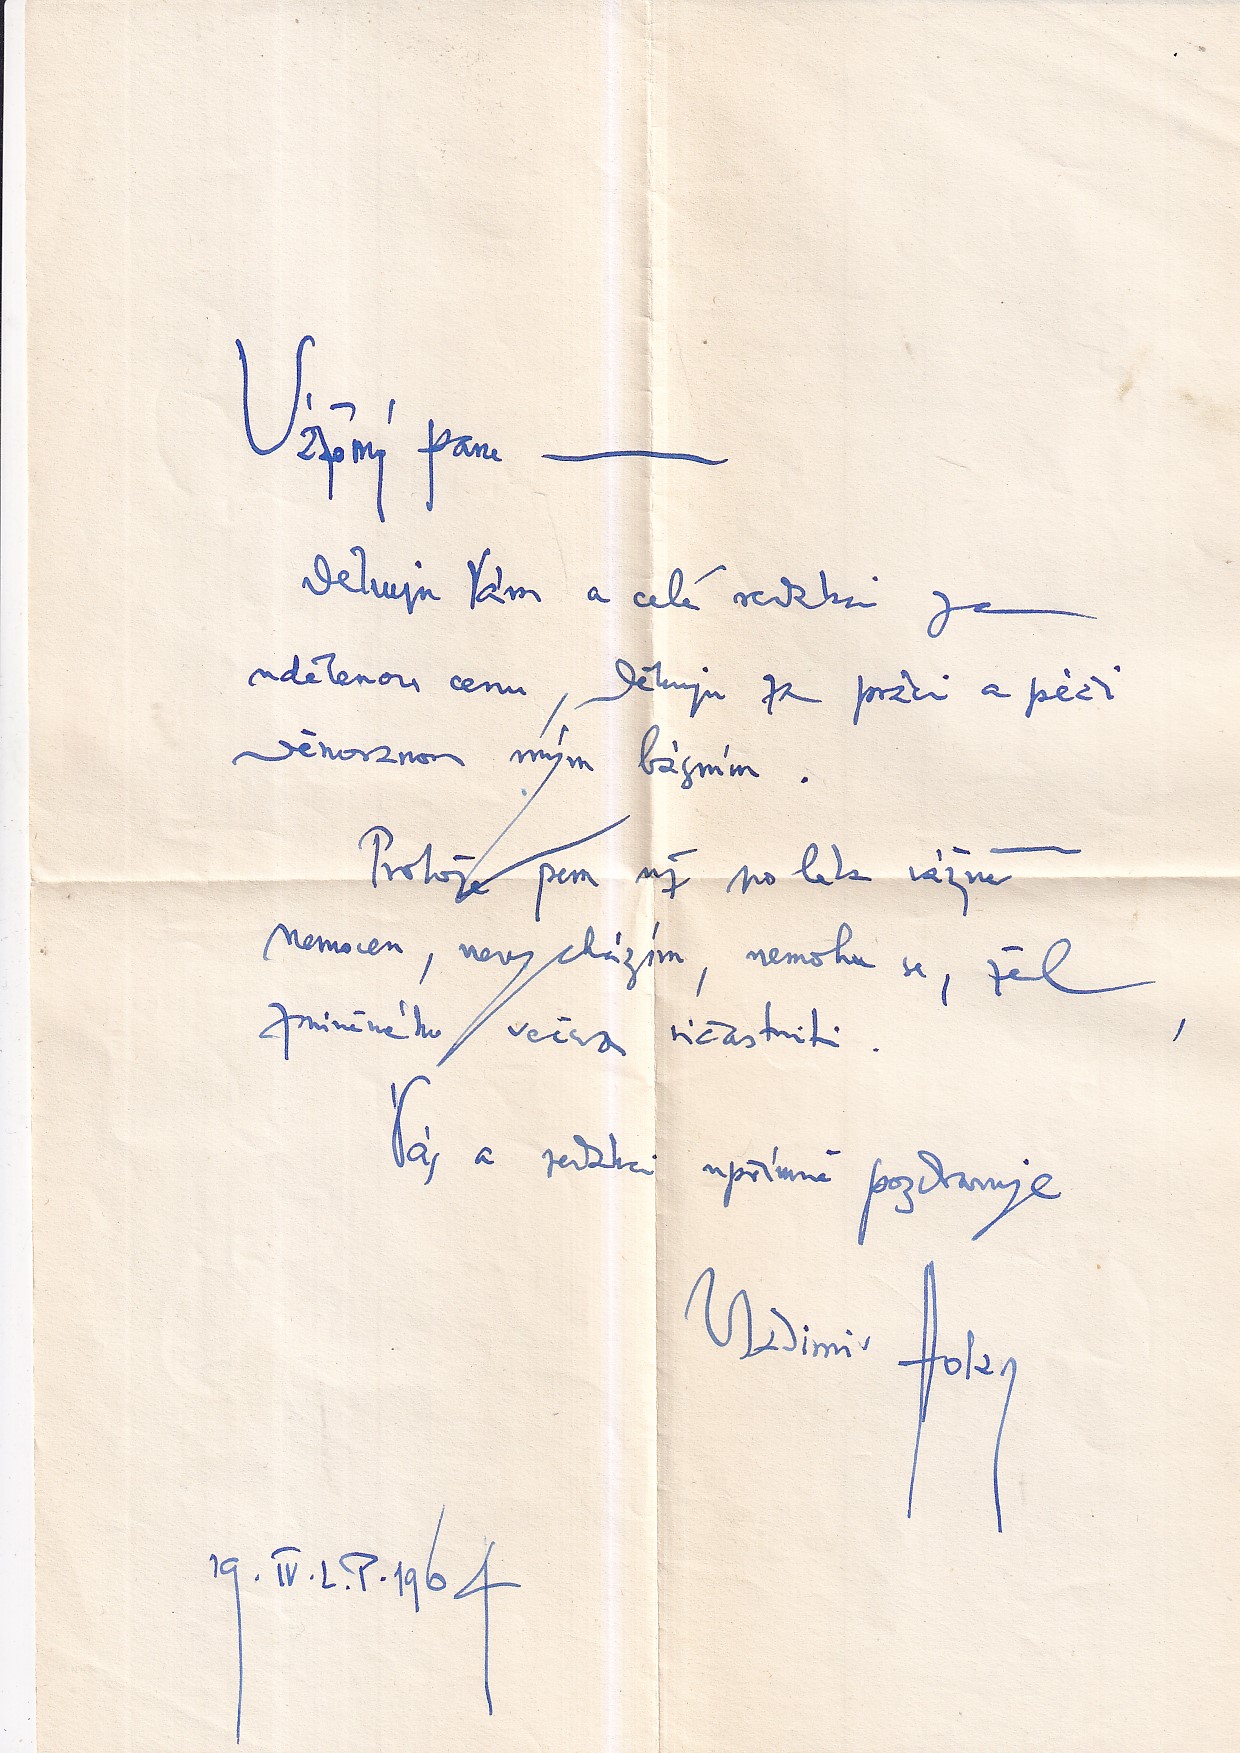 Vážený pane
Děkuji Vám a celé redakci za
udělenou cenu, děkuji za práci a péči
věnovanou mým básním.
Protože jsem už po léta vážně
nemocen, nevycházím, nemohu se, žel,
zmíněného večera účastniti.
Vás a redakci upřímně pozdravuje
Vladimír Holan
19. IV. L.P. 1964